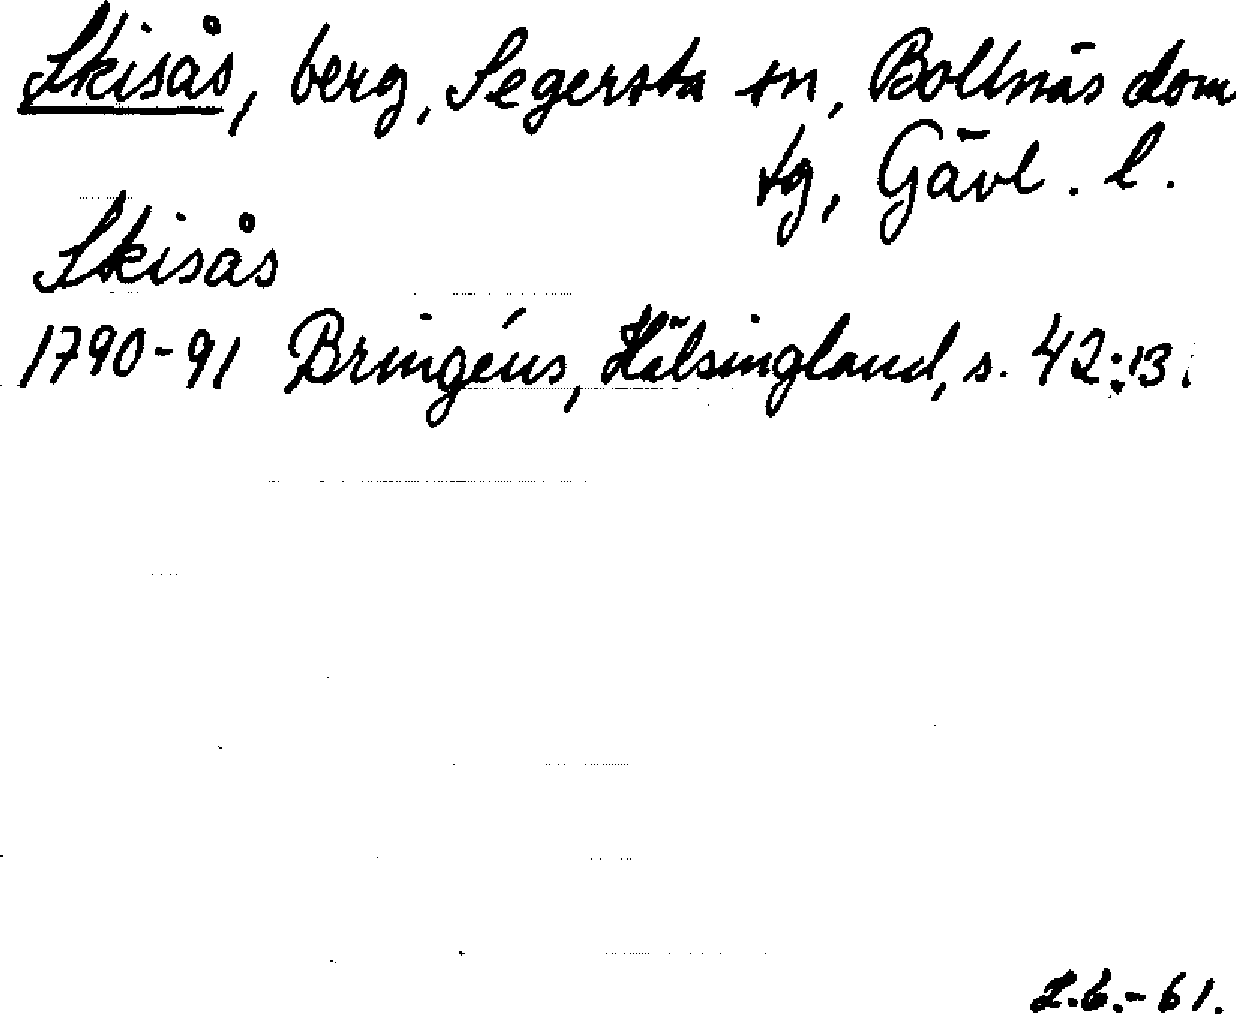 Skisås, berg, Segersta sn, Bollnäs dom
sg, Gävl. l.
Skisås
1790-91 Bringéus, Hälsingland, s. 42:13.
L.E.-61.